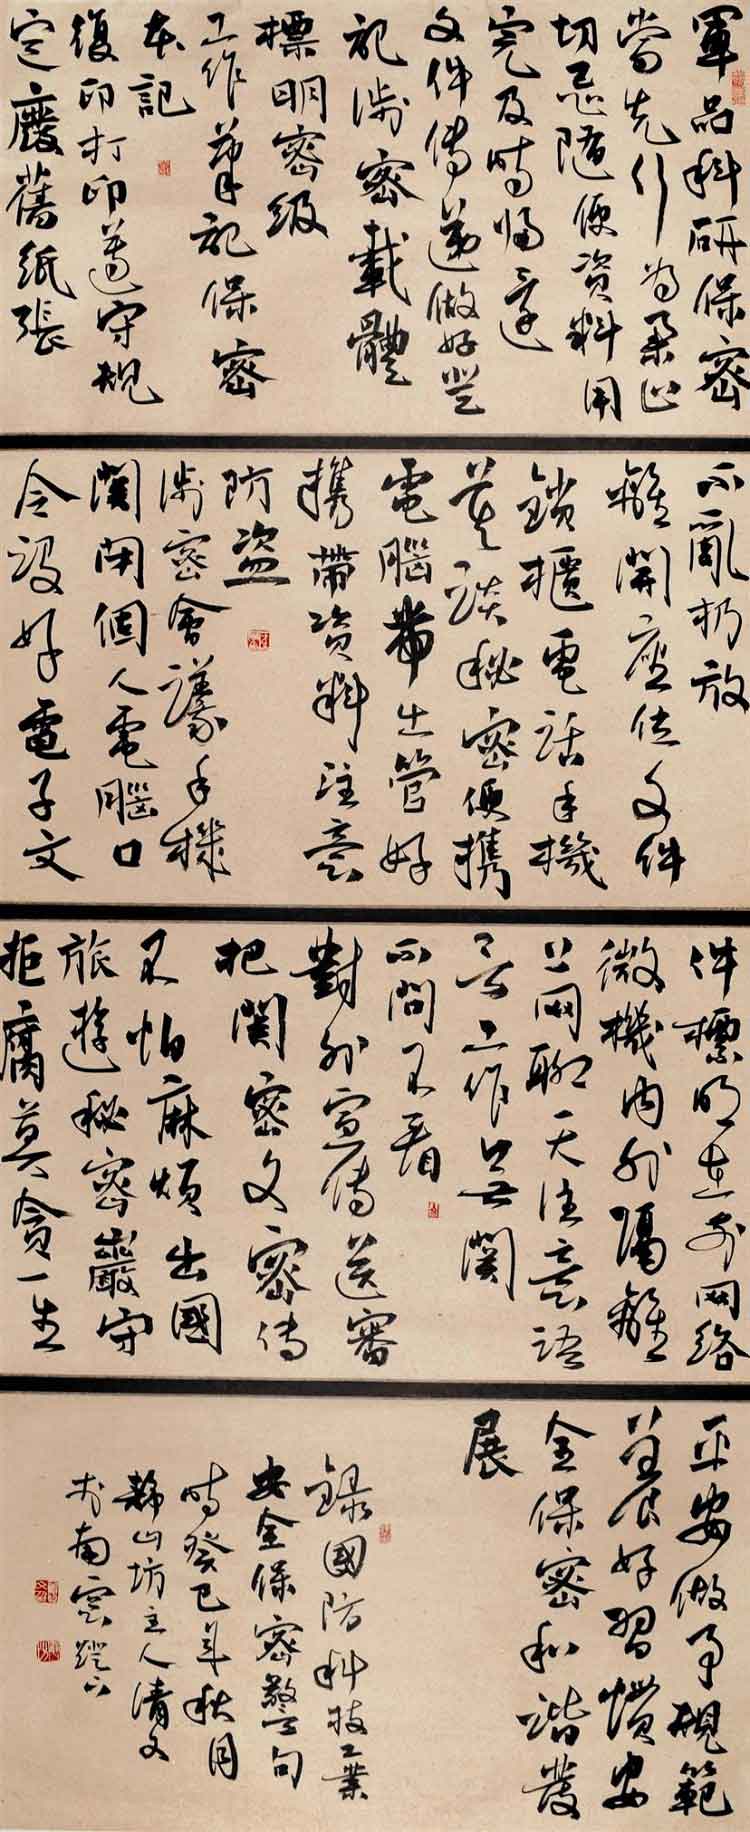 軍品科研保密
當先行為柔止
切忌随便资料用
完及時归還
文件傳遞做好登
記涉密載體
標明密級
工作筆記保密
本記
復印打印遵守規
定廢舊紙張
不亂扔放
離開座位文件
鎖櫃電話手機
莫談秘密便携
電腦帶出管好
携帶资料注意
防盗
涉密會議手機
関闭個人電腦口
令设好電子文
件標明在前网络
微機内外隔離
上网聊天注意语
言工作無関
不問不看
對外宣傳送審
把関密文密傳
不怕麻煩出國
旅遊秘密嚴守
拒腐莫貪一生
平安做事規範
養良好習慣安
全保密和谐發
展
錄國防科技工業
安全保密警句
時癸巳年秋月
静山坊主人清文
於南窓燈下